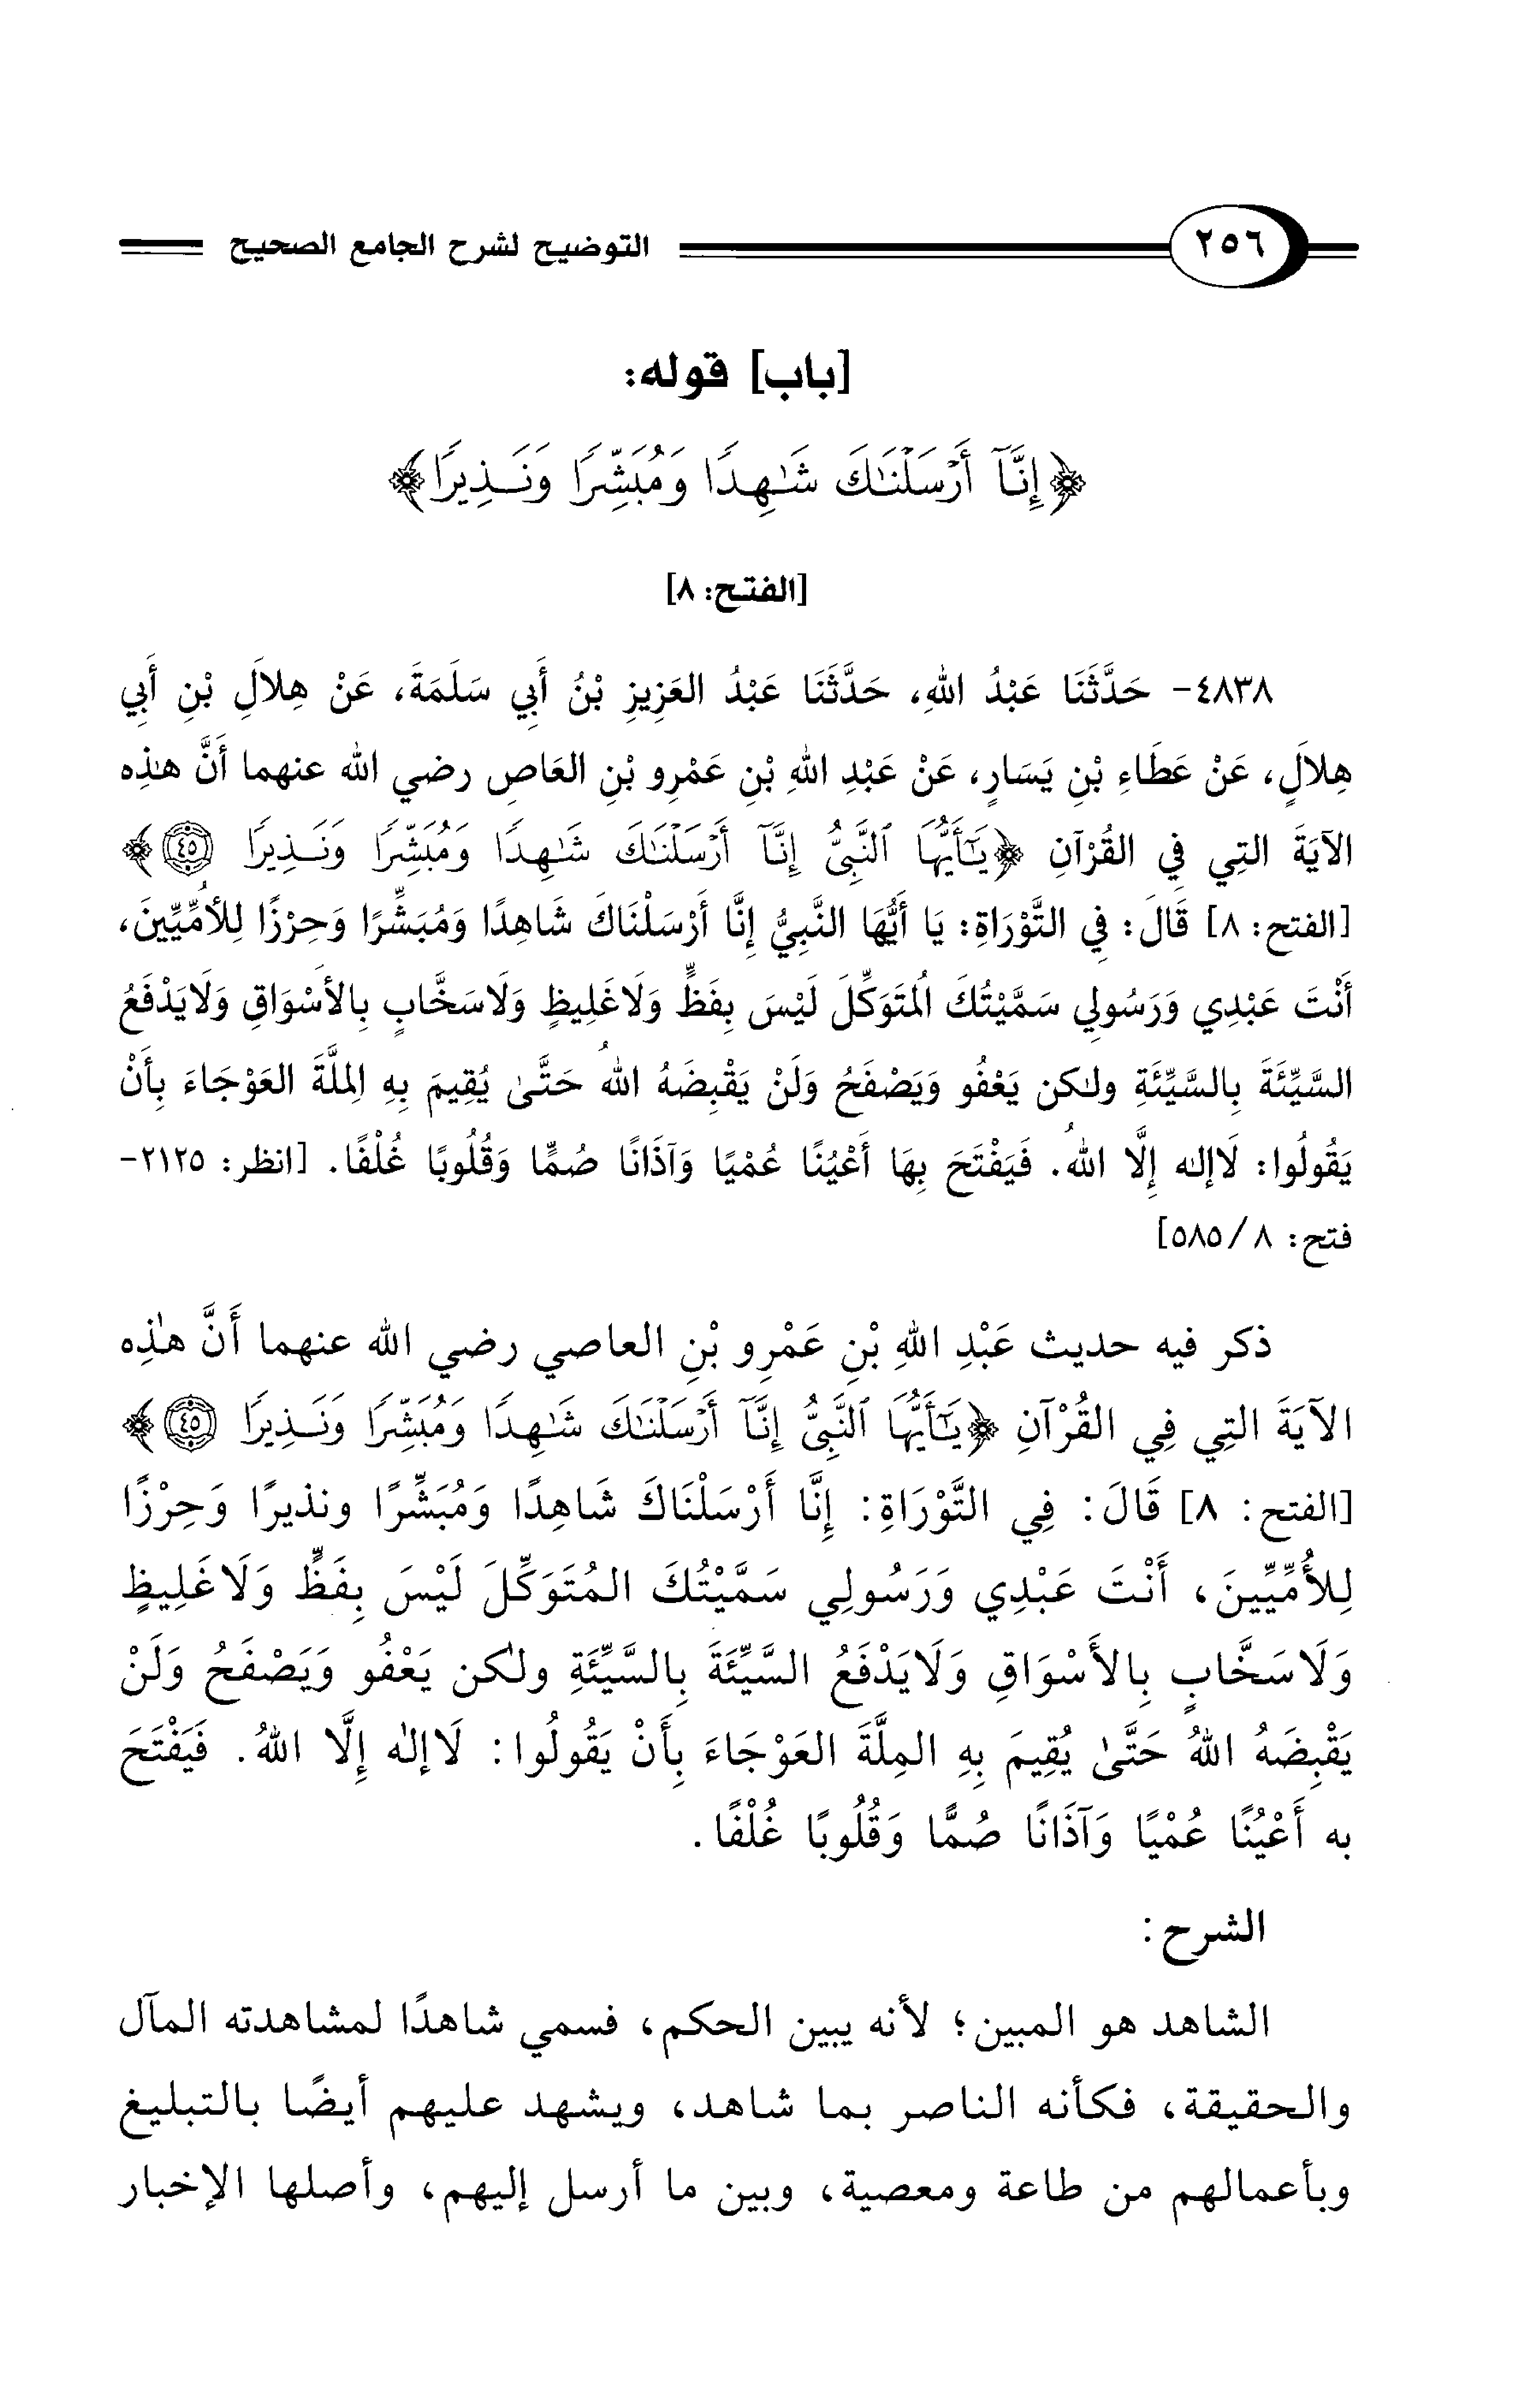 ٢٥٦ التوضيح لشرح الجامع الصحيح
[باب] قوله:
﴿إِنَّآ أَرْسَلْنَٰكَ شَٰهِدًا وَمُبَشِّرًا وَنَذِيرًا﴾
[الفتح: ٨]
٤٨٣٨- حَدَّثَنَا عَبْدُ اللهِ، حَدَّثَنَا عَبْدُ العَزِيزِ بْنُ أَبِي سَلَمَةَ، عَنْ هِلَالِ بْنِ أَبِي
هِلَالٍ، عَنْ عَطَاءِ بْنِ يَسَارٍ، عَنْ عَبْدِ اللهِ بْنِ عَمْرِو بْنِ العَاصِ رضي الله عنهما أَنَّ هذِه
الآيَةَ التِي فِي القُرْآنِ ﴿يَٰٓأَيُّهَا ٱلنَّبِىُّ إِنَّآ أَرْسَلْنَٰكَ شَٰهِدًا وَمُبَشِّرًا وَنَذِيرًا ٤٥﴾
[الفتح: ٨] قَالَ: فِي التَّوْرَاةِ: يَا أَيُّهَا النَّبِيُّ إِنَّا أَرْسَلْنَاكَ شَاهِدًا وَمُبَشِّرًا وَحِرْزًا لِلأُمِّيِّينَ،
أَنْتَ عَبْدِي وَرَسُولِي سَمَّيْتُكَ المُتَوَكِّلَ لَيْسَ بِفَظٍّ وَلَا غَلِيظٍ وَلَا سَخَّابٍ بِالأَسْوَاقِ وَلَا يَدْفَعُ
السَّيِّئَةَ بِالسَّيِّئَةِ ولكن يَعْفُو وَيَصْفَحُ وَلَنْ يَقْبِضَهُ اللهُ حَتَّىٰ يُقِيمَ بِهِ المِلَّةَ العَوْجَاءَ بِأَنْ
يَقُولُوا: لَا إله إِلَّا اللهُ. فَيَفْتَحَ بِهَا أَعْيُنًا عُمْيًا وَآذَانًا صُمًّا وَقُلُوبًا غُلْفًا. [انظر: ٢١٢٥-
فتح: ٨/ ٥٨٥]
ذكر فيه حديث عَبْدِ اللهِ بْنِ عَمْرِو بْنِ العاصي رضي الله عنهما أَنَّ هذِه
الآيَةَ التِي فِي القُرْآنِ ﴿يَٰٓأَيُّهَا ٱلنَّبِىُّ إِنَّآ أَرْسَلْنَٰكَ شَٰهِدًا وَمُبَشِّرًا وَنَذِيرًا ٤٥﴾
[الفتح: ٨] قَالَ: فِي التَّوْرَاةِ: إِنَّا أَرْسَلْنَاكَ شَاهِدًا وَمُبَشِّرًا ونذيرًا وَحِرْزًا
لِلأُمِّيِّينَ، أَنْتَ عَبْدِي وَرَسُولِي سَمَّيْتُكَ المُتَوَكِّلَ لَيْسَ بِفَظٍّ وَلَا غَلِيظٍ
وَلَا سَخَّابٍ بِالأَسْوَاقِ وَلَا يَدْفَعُ السَّيِّئَةَ بِالسَّيِّئَةِ ولكن يَعْفُو وَيَصْفَحُ وَلَنْ
يَقْبِضَهُ اللهُ حَتَّىٰ يُقِيمَ بِهِ المِلَّةَ العَوْجَاءَ بِأَنْ يَقُولُوا: لَا إله إِلَّا اللهُ. فَيَفْتَحَ
به أَعْيُنًا عُمْيًا وَآذَانًا صُمًّا وَقُلُوبًا غُلْفًا.
الشرح:
الشاهد هو المبين؛ لأنه يبين الحكم، فسمي شاهدًا لمشاهدته المآل
والحقيقة، فكأنه الناصر بما شاهد، ويشهد عليهم أيضًا بالتبليغ
وبأعمالهم من طاعة ومعصية، وبين ما أرسل إليهم، وأصلها الإخبار